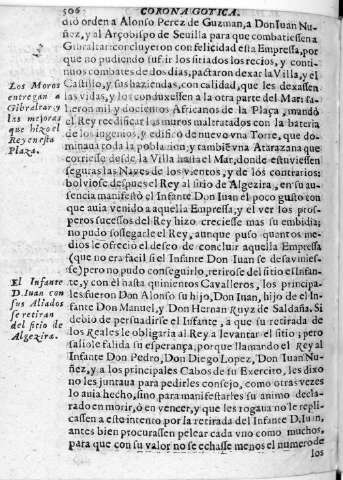 506 CORONA GOTICA.
dió orden a Alonso Perez de Guzman, a Don Iuan Nu-
ñez, y al Arçobispo de Sevilla para que combatiessen a
Gibraltar: concluyeron con felicidad esta Empressa, por
que no pudiendo sufrir los sitiados los recios, y conti-
nuos combates de dos dias, pactaron dexar la Villa, y el
Castillo, y sus haziendas, con calidad, que les dexassen
las vidas, y los conduxessen a la otra parte del Mar: sa-
lieron mil y docientos Africanos de la Plaça, mandó
el Rey reedificar los muros maltratados con la bateria
de los ingenios, y edificó de nuevo vna Torre, que do-
minava toda la poblacion, y tambien vna Atarazana que
corriesse desde la Villa hasta el Mar, donde estuviessen
seguras las Naves de los vientos, y de los contrarios:
bolviose despues el Rey al sitio de Algezira, en su au-
sencia manifestó el Infante Don Iuan el poco gusto con
que avia venido a aquella Empressa, y el ver los pros-
peros successos del Rey hizo creciesse mas su embidia;
no pudo sossegarle el Rey, aunque puso quantos me-
dios le ofreció el deseo de concluir aquella Empressa
(que no era facil si el Infante Don Iuan se desavinies-
se) pero no pudo conseguirlo, retirose del sitio el Infan-
te, y con él hasta quinientos Cavalleros, los principa-
les fueron Don Alonso su hijo, Don Iuan, hijo de el In-
fante Don Manuel, y Don Hernan Ruyz de Saldaña. Si
debió de persuadirse el Infante, a que su retirada de
los Reales le obligaria al Rey a levantar el sitio; pero
saliole falsa su esperança, porque llamando el Rey al
Infante Don Pedro, Don Diego Lopez, Don Iuan Nu-
ñez, y a los principales Cabos de su Exercito, les dixo
no les juntava para pedirles consejo, como otras vezes
lo avia hecho, sino para manifestarles su animo decla-
rado en morir, ó en vencer, y que les rogava no le repli-
cassen a esto intento por la retirada del Infante D. Iuan,
antes bien procurassen pelear cada vno como muchos,
para que con su valor no se echasse menos el numero de
los
Los Moros
entregan a
Gibraltar, y
las mejoras
que hizo el
Rey en esta
Plaza.
El Infante
D. Iuan con
sus Aliados
se retiran
del sitio de
Algezira.